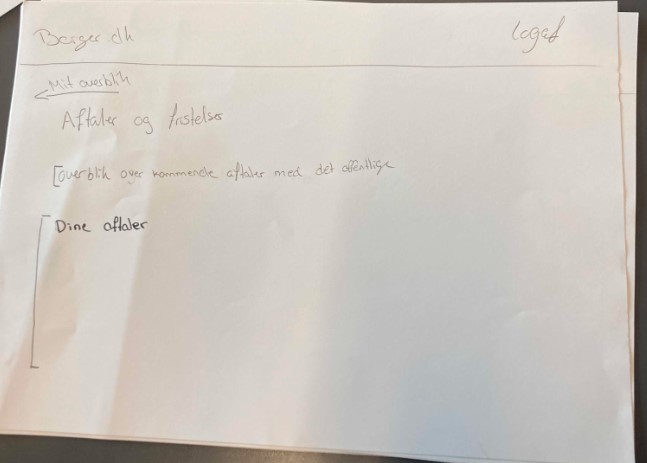 Borger dk
log af
Mit overblik
Aftaler og fristelser
[Overblik over kommende aftaler med det offentlige
Dine aftaler